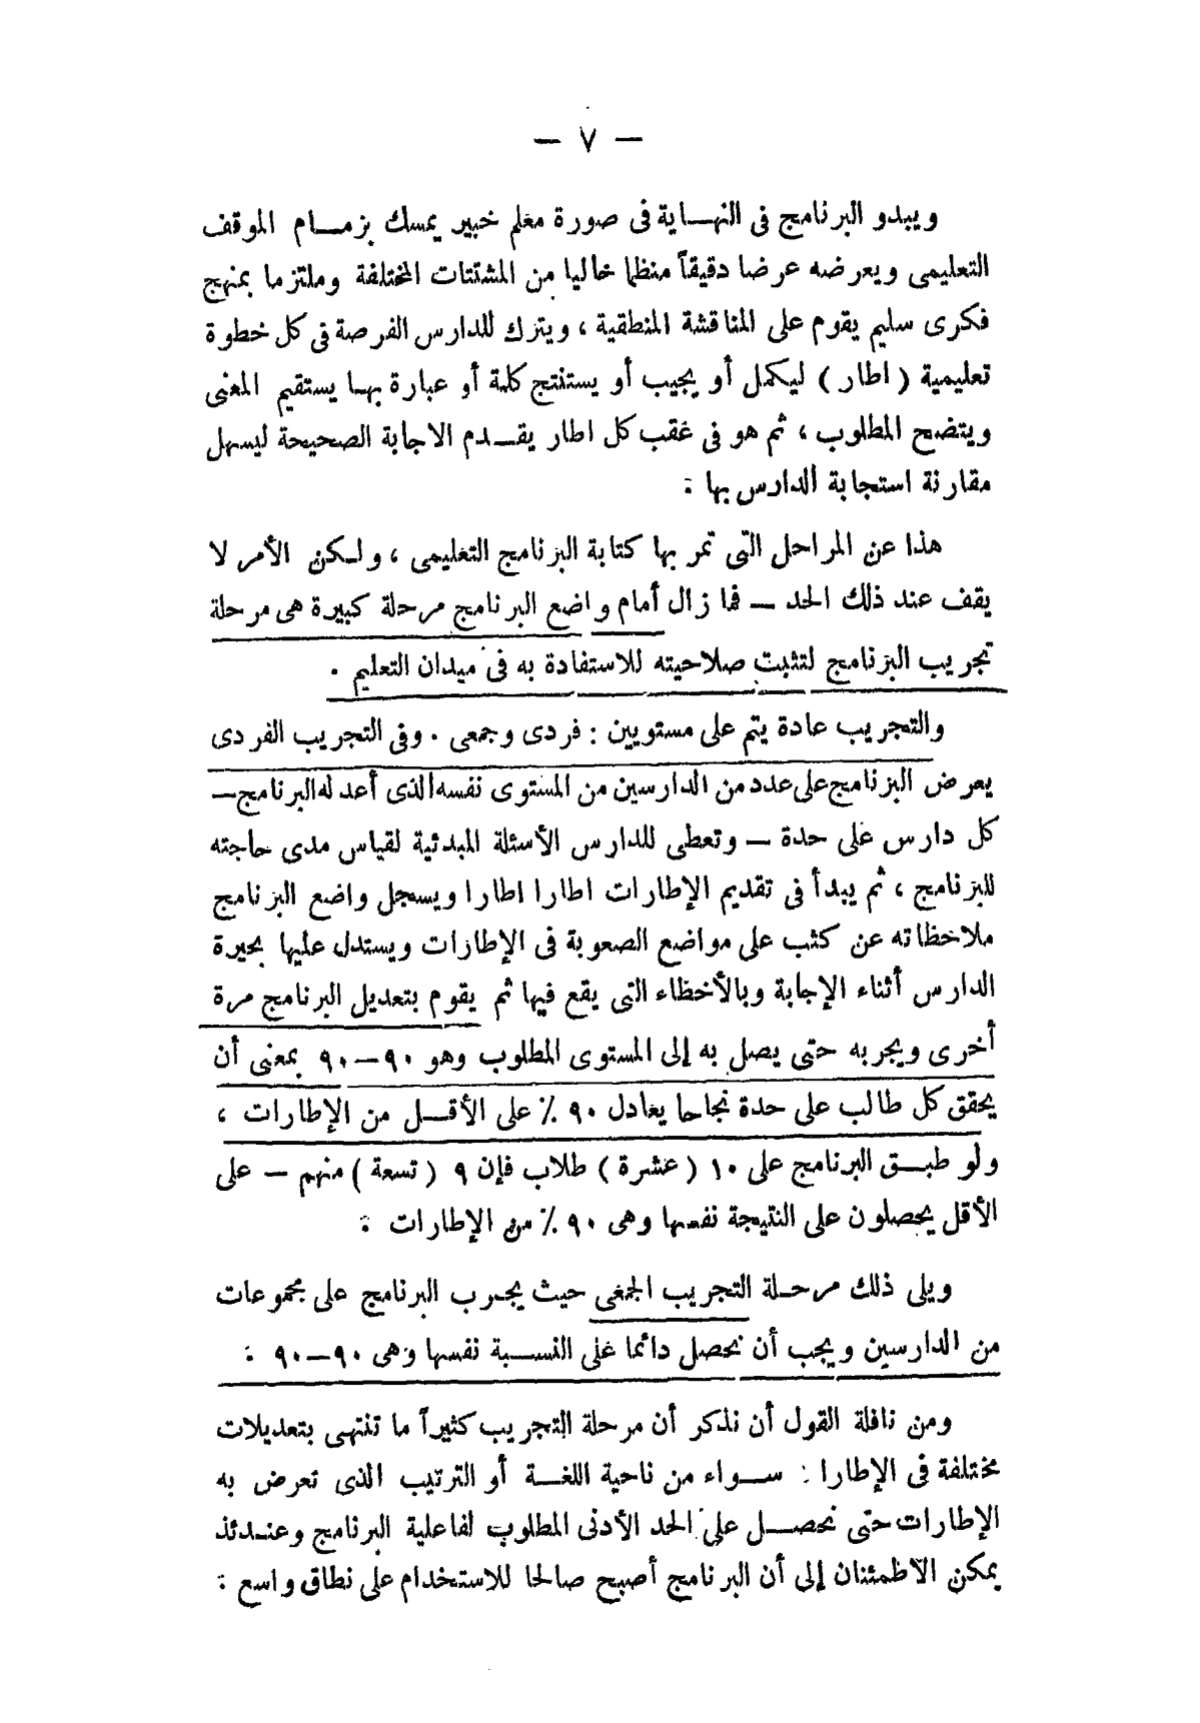 — ٧ —
ويبدو البرنامج فى النهاية فى صورة معلم خبير يمسك بزمام الموقف
التعليمى ويعرضه عرضا دقيقاً منظما خاليا من المشتتات المختلفة وملتزما بمنهج
فكرى سليم يقوم على المناقشة المنطقية ، ويترك للدارس الفرصة فى كل خطوة
تعليمية ( اطار ) ليكمل أو يجيب أو يستنتج كلمة أو عبارة بها يستقيم المعنى
ويتضح المطلوب ، ثم هو فى عقب كل اطار يقدم الاجابة الصحيحة ليسهل
مقارنة استجابة الدارس بها .
هذا عن المراحل التى تمر بها كتابة البرنامج التعليمى ، ولكن الأمر لا
يقف عند ذلك الحد — فما زال أمام واضع البرنامج مرحلة كبيرة هى مرحلة
تجريب البرنامج لتثبت صلاحيته للاستفادة به فى ميدان التعليم .
والتجريب عادة يتم على مستويين : فردى وجمعى . وفى التجريب الفردى
يعرض البرنامج على عدد من الدارسين من المستوى نفسه الذى أعد له البرنامج —
كل دارس على حدة — وتعطى للدارس الأسئلة المبدئية لقياس مدى حاجته
للبرنامج ، ثم يبدأ فى تقديم الإطارات اطارا اطارا ويسجل واضع البرنامج
ملاحظاته عن كثب على مواضع الصعوبة فى الإطارات ويستدل عليها بحيرة
الدارس أثناء الإجابة وبالأخطاء التى يقع فيها ثم يقوم بتعديل البرنامج مرة
أخرى ويجربه حتى يصل به إلى المستوى المطلوب وهو ٩٠—٩٠ بمعنى أن
يحقق كل طالب على حدة نجاحا يعادل ٩٠ ٪ على الأقل من الإطارات ،
ولو طبق البرنامج على ١٠ ( عشرة ) طلاب فإن ٩ ( تسعة ) منهم — على
الأقل يحصلون على النتيجة نفسها وهى ٩٠ ٪ من الإطارات .
ويلى ذلك مرحلة التجريب الجمعى حيث يجرب البرنامج على مجموعات
من الدارسين ويجب أن نحصل دائما على النسبة نفسها وهى ٩٠—٩٠ .
ومن نافلة القول أن نذكر أن مرحلة التجريب كثيراً ما تنتهى بتعديلات
مختلفة فى الإطارا : سواء من ناحية اللغة أو الترتيب الذى تعرض به
الإطارات حتى نحصل على الحد الأدنى المطلوب لفاعلية البرنامج وعندئذ
يمكن الاطمئنان إلى أن البرنامج أصبح صالحا للاستخدام على نطاق واسع .